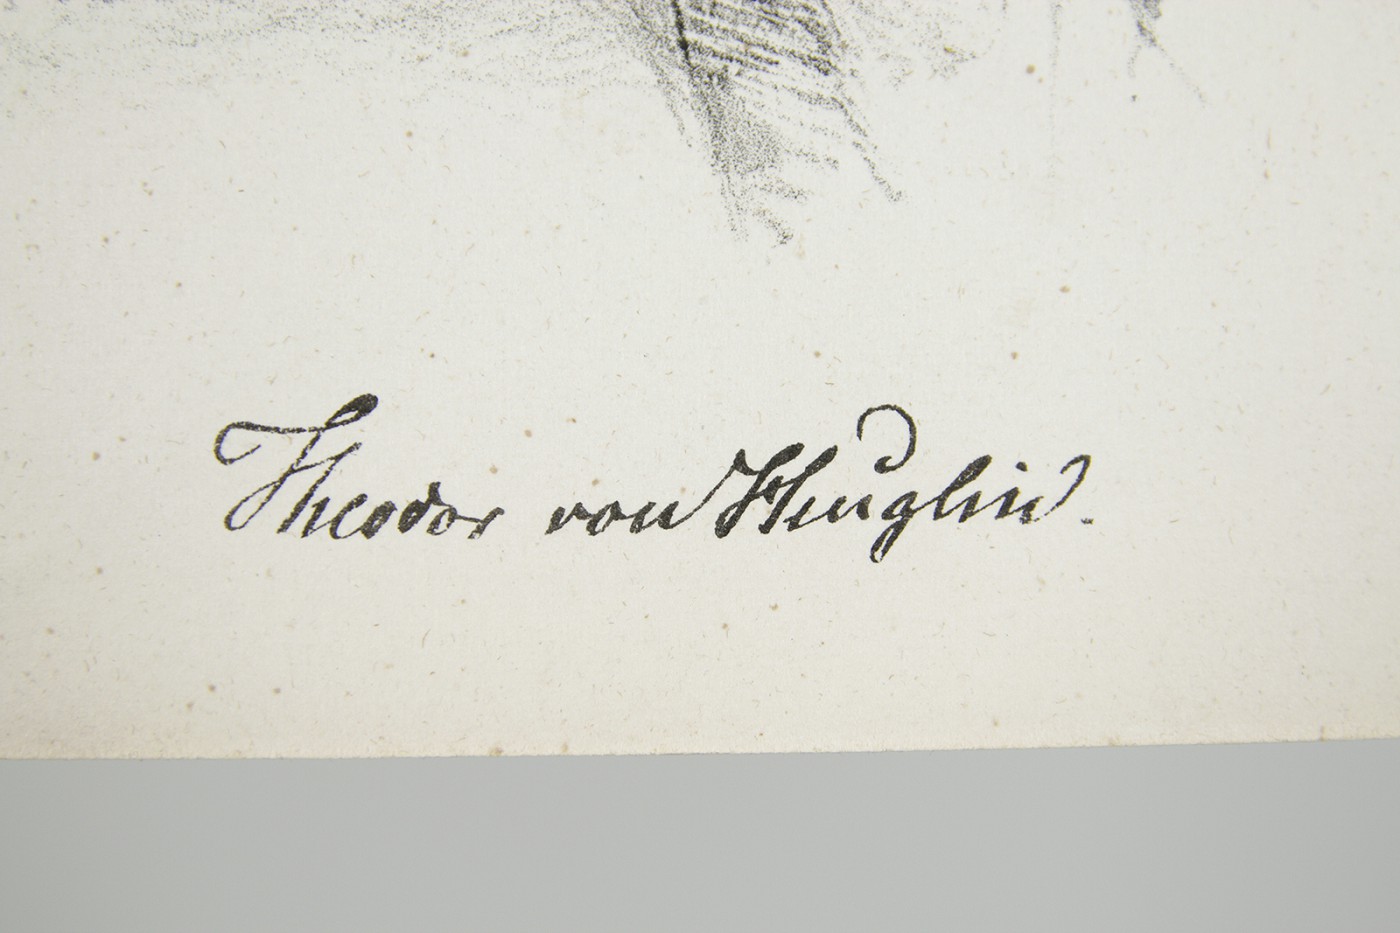 Theodor von Heuglin.